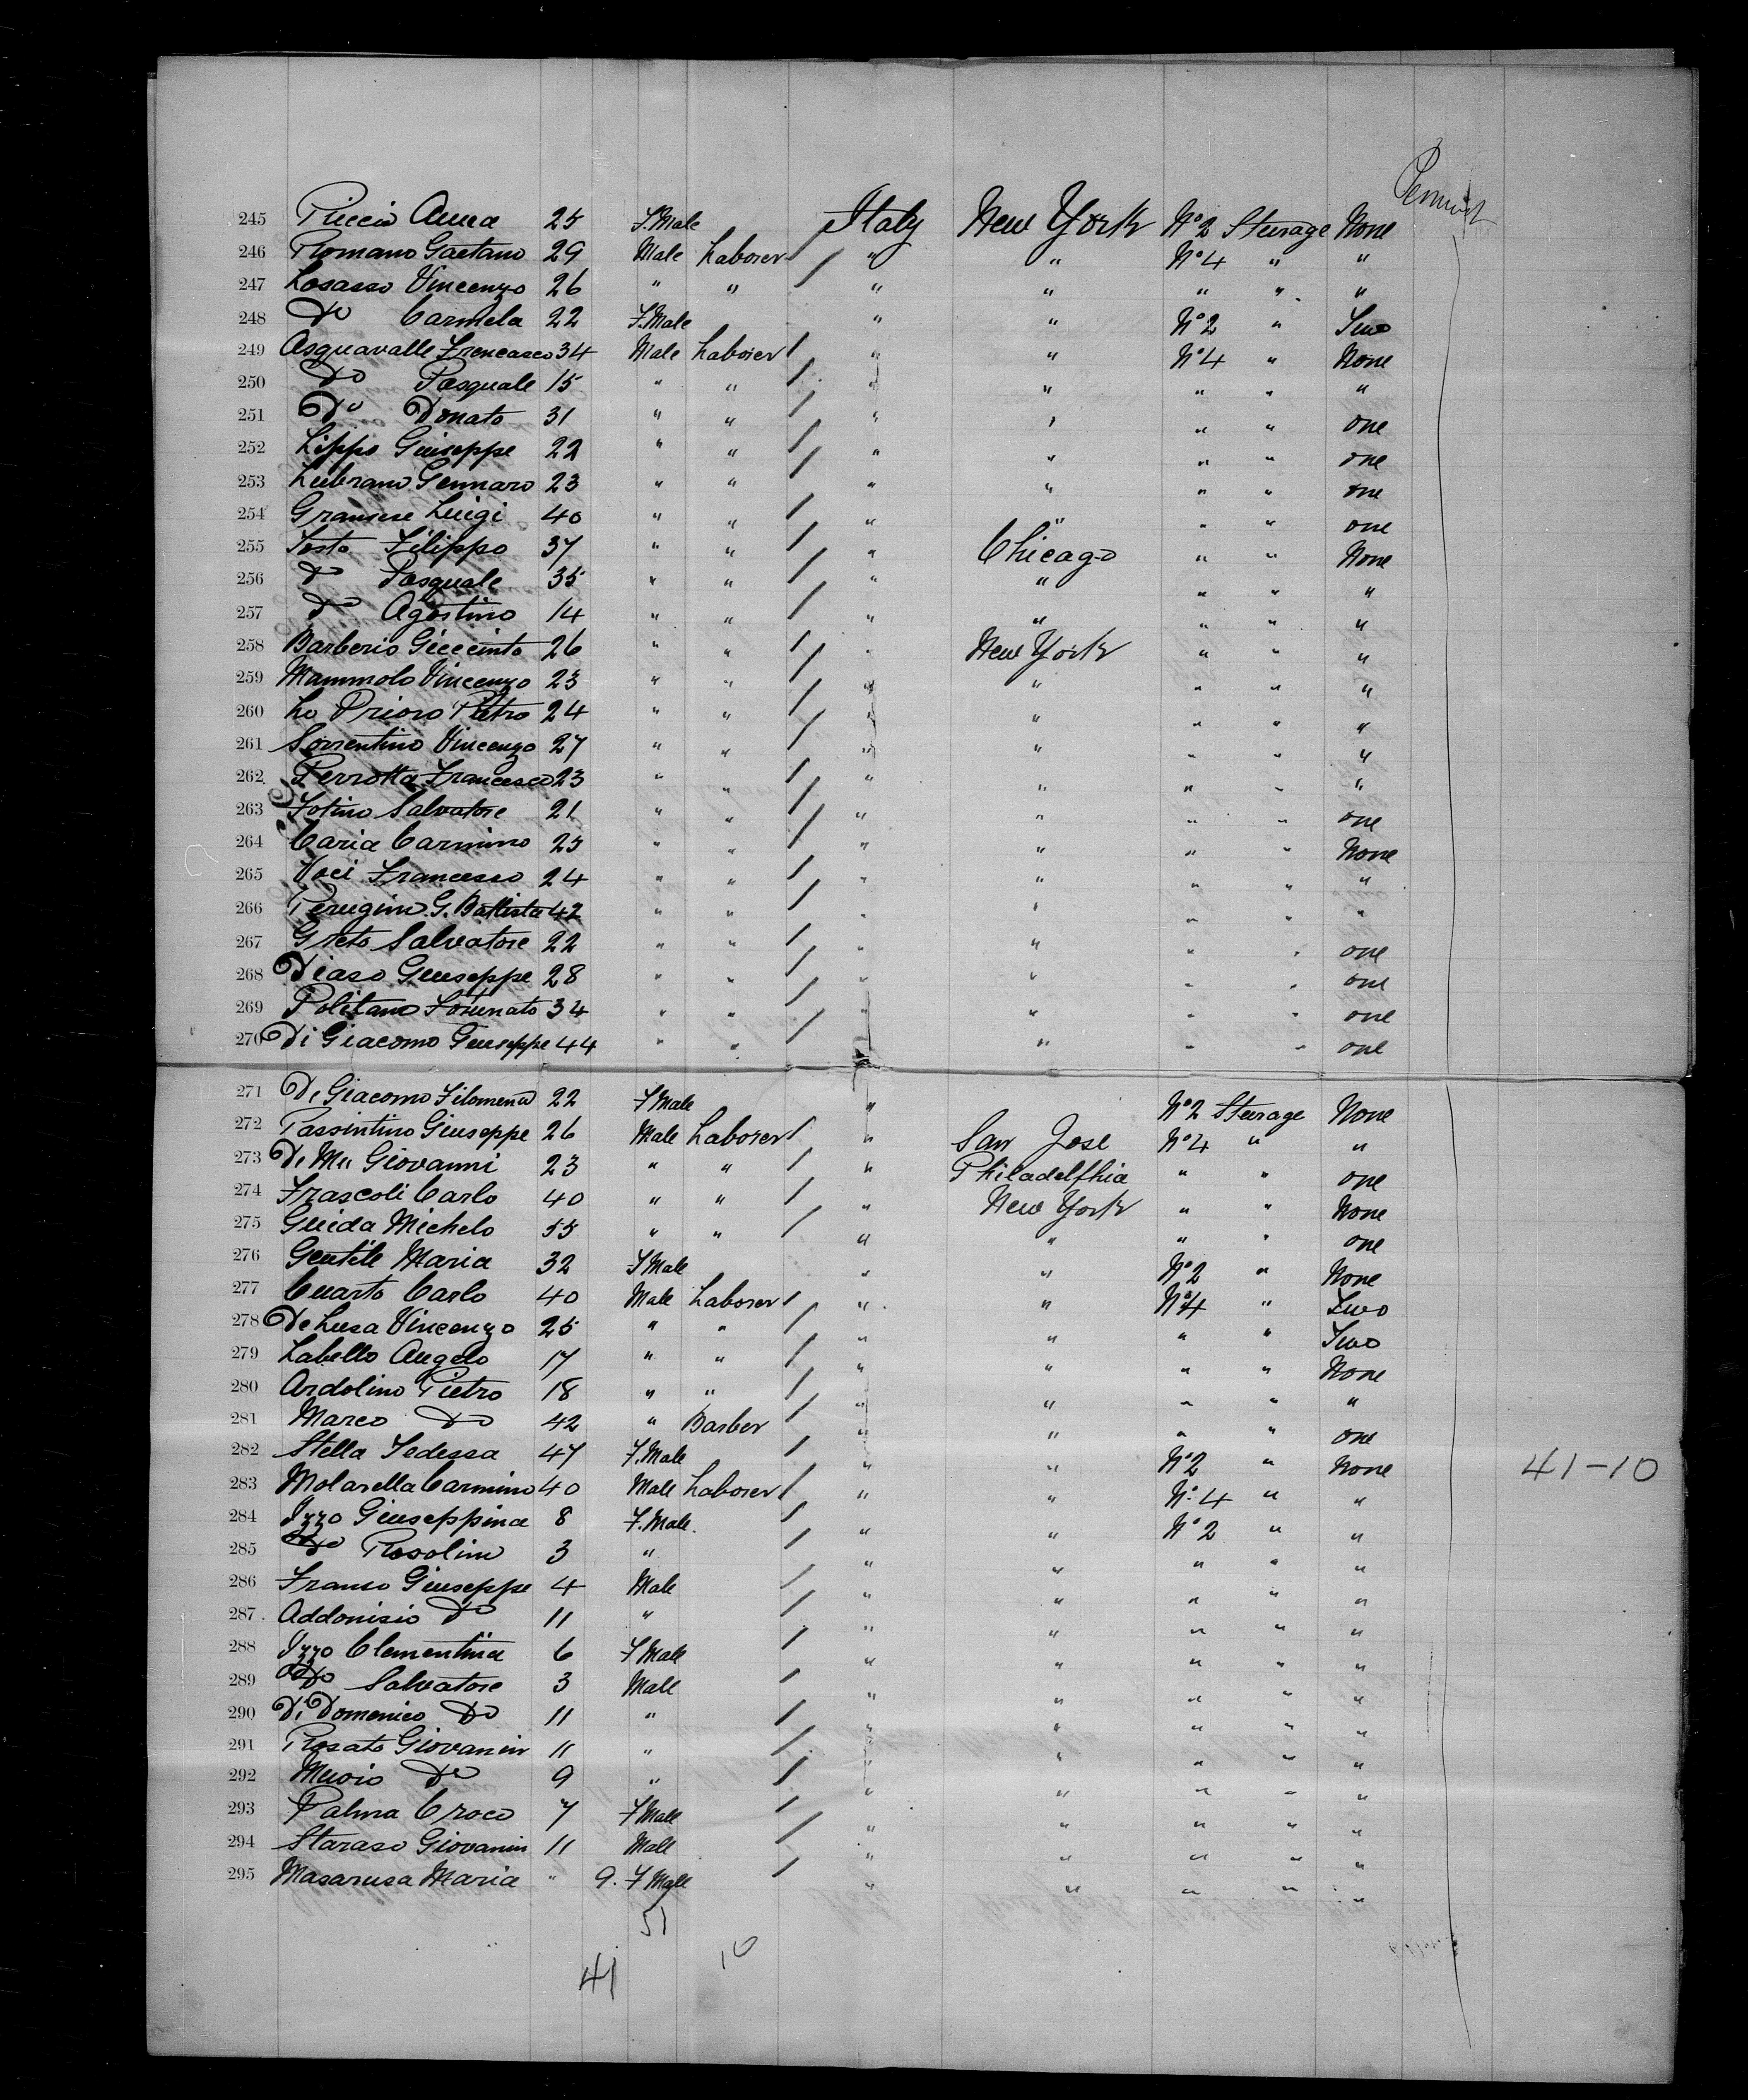 Permnt
245 Puccio Anna 25 F.Male Italy New York No 2 Steerage None
246 Romano Gaetano 29 Male Laborer " " No 4 " "
247 Losasso Vincenzo 26 " " " " " " "
248 Do Carmela 22 F.Male " " No 2 " Two
249 Asquavalle Francasco 34 Male Laborer " " No 4 " None
250 Do Pasquale 15 " " " " " " "
251 Do Donato 31 " " " " " " one
252 Lippo Giuseppe 22 " " " " " " one
253 Lubrano Gennaro 23 " " " " " " one
254 Luigi 40 " " " " " " one
255 Testa Filippo 37 " " " Chicago " " None
256 Do Pasquale 35 " " " " " " "
257 Do Agostino 14 " " " " " " "
258 Barberio Giccinto 26 " " " New York " " "
259 Mammolo Vincenzo 23 " " " " " " "
260 Lo Prioro Pietro 24 " " " " " " "
261 Sorrentino Vincenzo 27 " " " " " " "
262 Perrotta Francesco 23 " " " " " " "
263 Fotino Salvatore 21 " " " " " " one
264 Caria Carmino 25 " " " " " " None
265 Voci Francesco 24 " " " " " " "
266 Perugino G. Battista 42 " " " " " " "
267 Greto Salvatore 22 " " " " " " one
268 Diaso Giuseppe 28 " " " " " " one
269 Politano Fortunato 34 " " " " " " one
270 Di Giacomo Giuseppe 44 " " " " " " one
271 Di Giacomo Filomena 22 F Male " No 2 Steerage None
272 Passintino Giuseppe 26 Male Laborer " San Jose No 4 " "
273 Di Giovanni 23 " " " Philadelfhia " " one
274 Frascoli Carlo 40 " " " New York " " None
275 Guida Michelo 55 " " " " " " one
276 Gentile Maria 32 F Male " " No 2 " None
277 Cuarto Carlo 40 Male Laborer " " No 4 " Two
278 De Lusa Vincenzo 25 " " " " " " Two
279 Labello Angelo 17 " " " " " " None
280 Ardolino Pietro 18 " " " " " " "
281 Marco Do 42 " Barber " " " " one
282 Stella Tedessa 47 F.Male " " No 2 " None 41-10
283 Molarella Carmino 40 Male Laborer " " No 4 " "
284 Izzo Giuseppina 8 F.Male " " No 2 " "
285 Do Rosolina 3 " " " " " "
286 Franco Giuseppe 4 Male " " " " "
287 Addonisio Do 11 " " " " " "
288 Izzo Clementina 6 F Male " " " " "
289 Do Salvatore 3 Male " " " " "
290 Di Domenico Do 11 " " " " " "
291 Rosato Giovanni 11 " " " " " "
292 Do 9 " " " " " "
293 Palma Croco 7 F Male " " " " "
294 Staraso Giovanni 11 Male " " " " "
295 Masarusa Maria " 9. F Male " " " " "
51
41 10